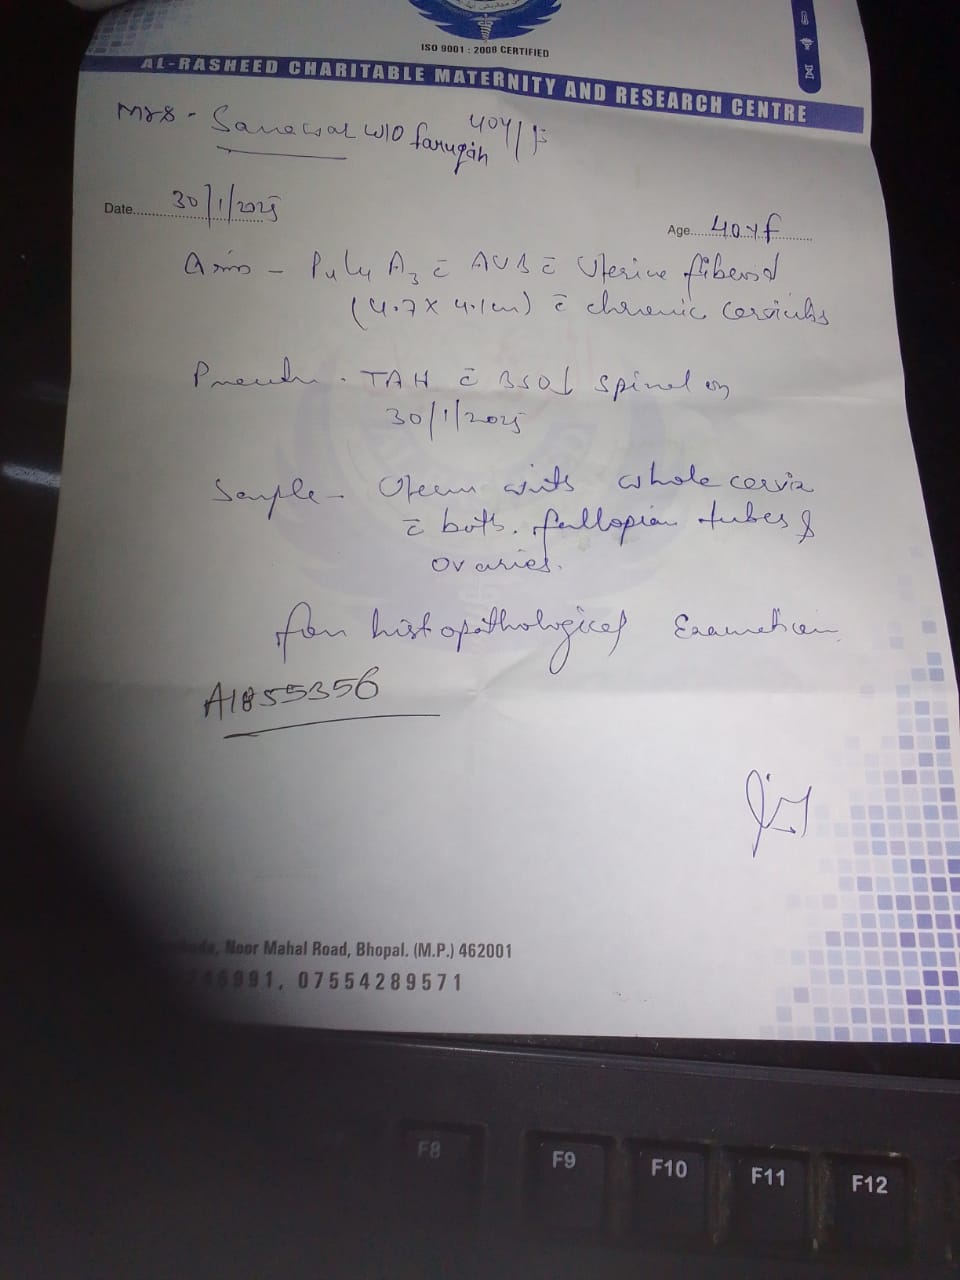 ISO 9001 : 2008 CERTIFIED
AL-RASHEED CHARITABLE MATERNITY AND RESEARCH CENTRE
Mrs - W/O 40Y/F
Date 30/1/2025
Age 40Yf
A3 c̄ AUB c̄ Uterine fibroid
(4.7 x 4.1cm) c̄ chronic cervicitis
TAH c̄ BSO ↓ spinal on
30/1/2025
Sample - with whole cervix
c̄ both. fallopian tubes &
ovaries.
for histopathological Examination
A1855356
Noor Mahal Road, Bhopal. (M.P.) 462001
07554289571
F8
F9
F10
F11
F12